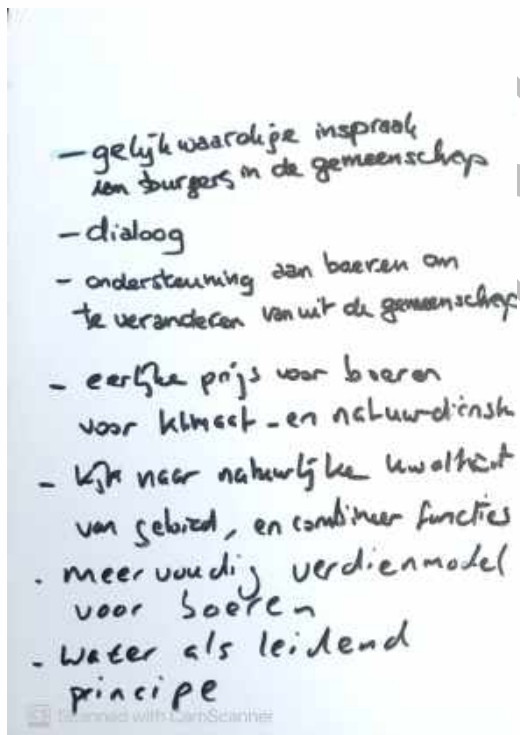 - gelijkwaardige inspraak
van burgers in de gemeenschap
- dialoog
- ondersteuning aan boeren om
te veranderen vanuit de gemeenschap
- eerlijke prijs voor boeren
voor klimaat- en natuurdienst
- kijk naar natuurlijke kwaliteit
van gebied, en combineer functies
. meervoudig verdienmodel
voor boeren
- water als leidend
principe
CS Scanned with CamScanner